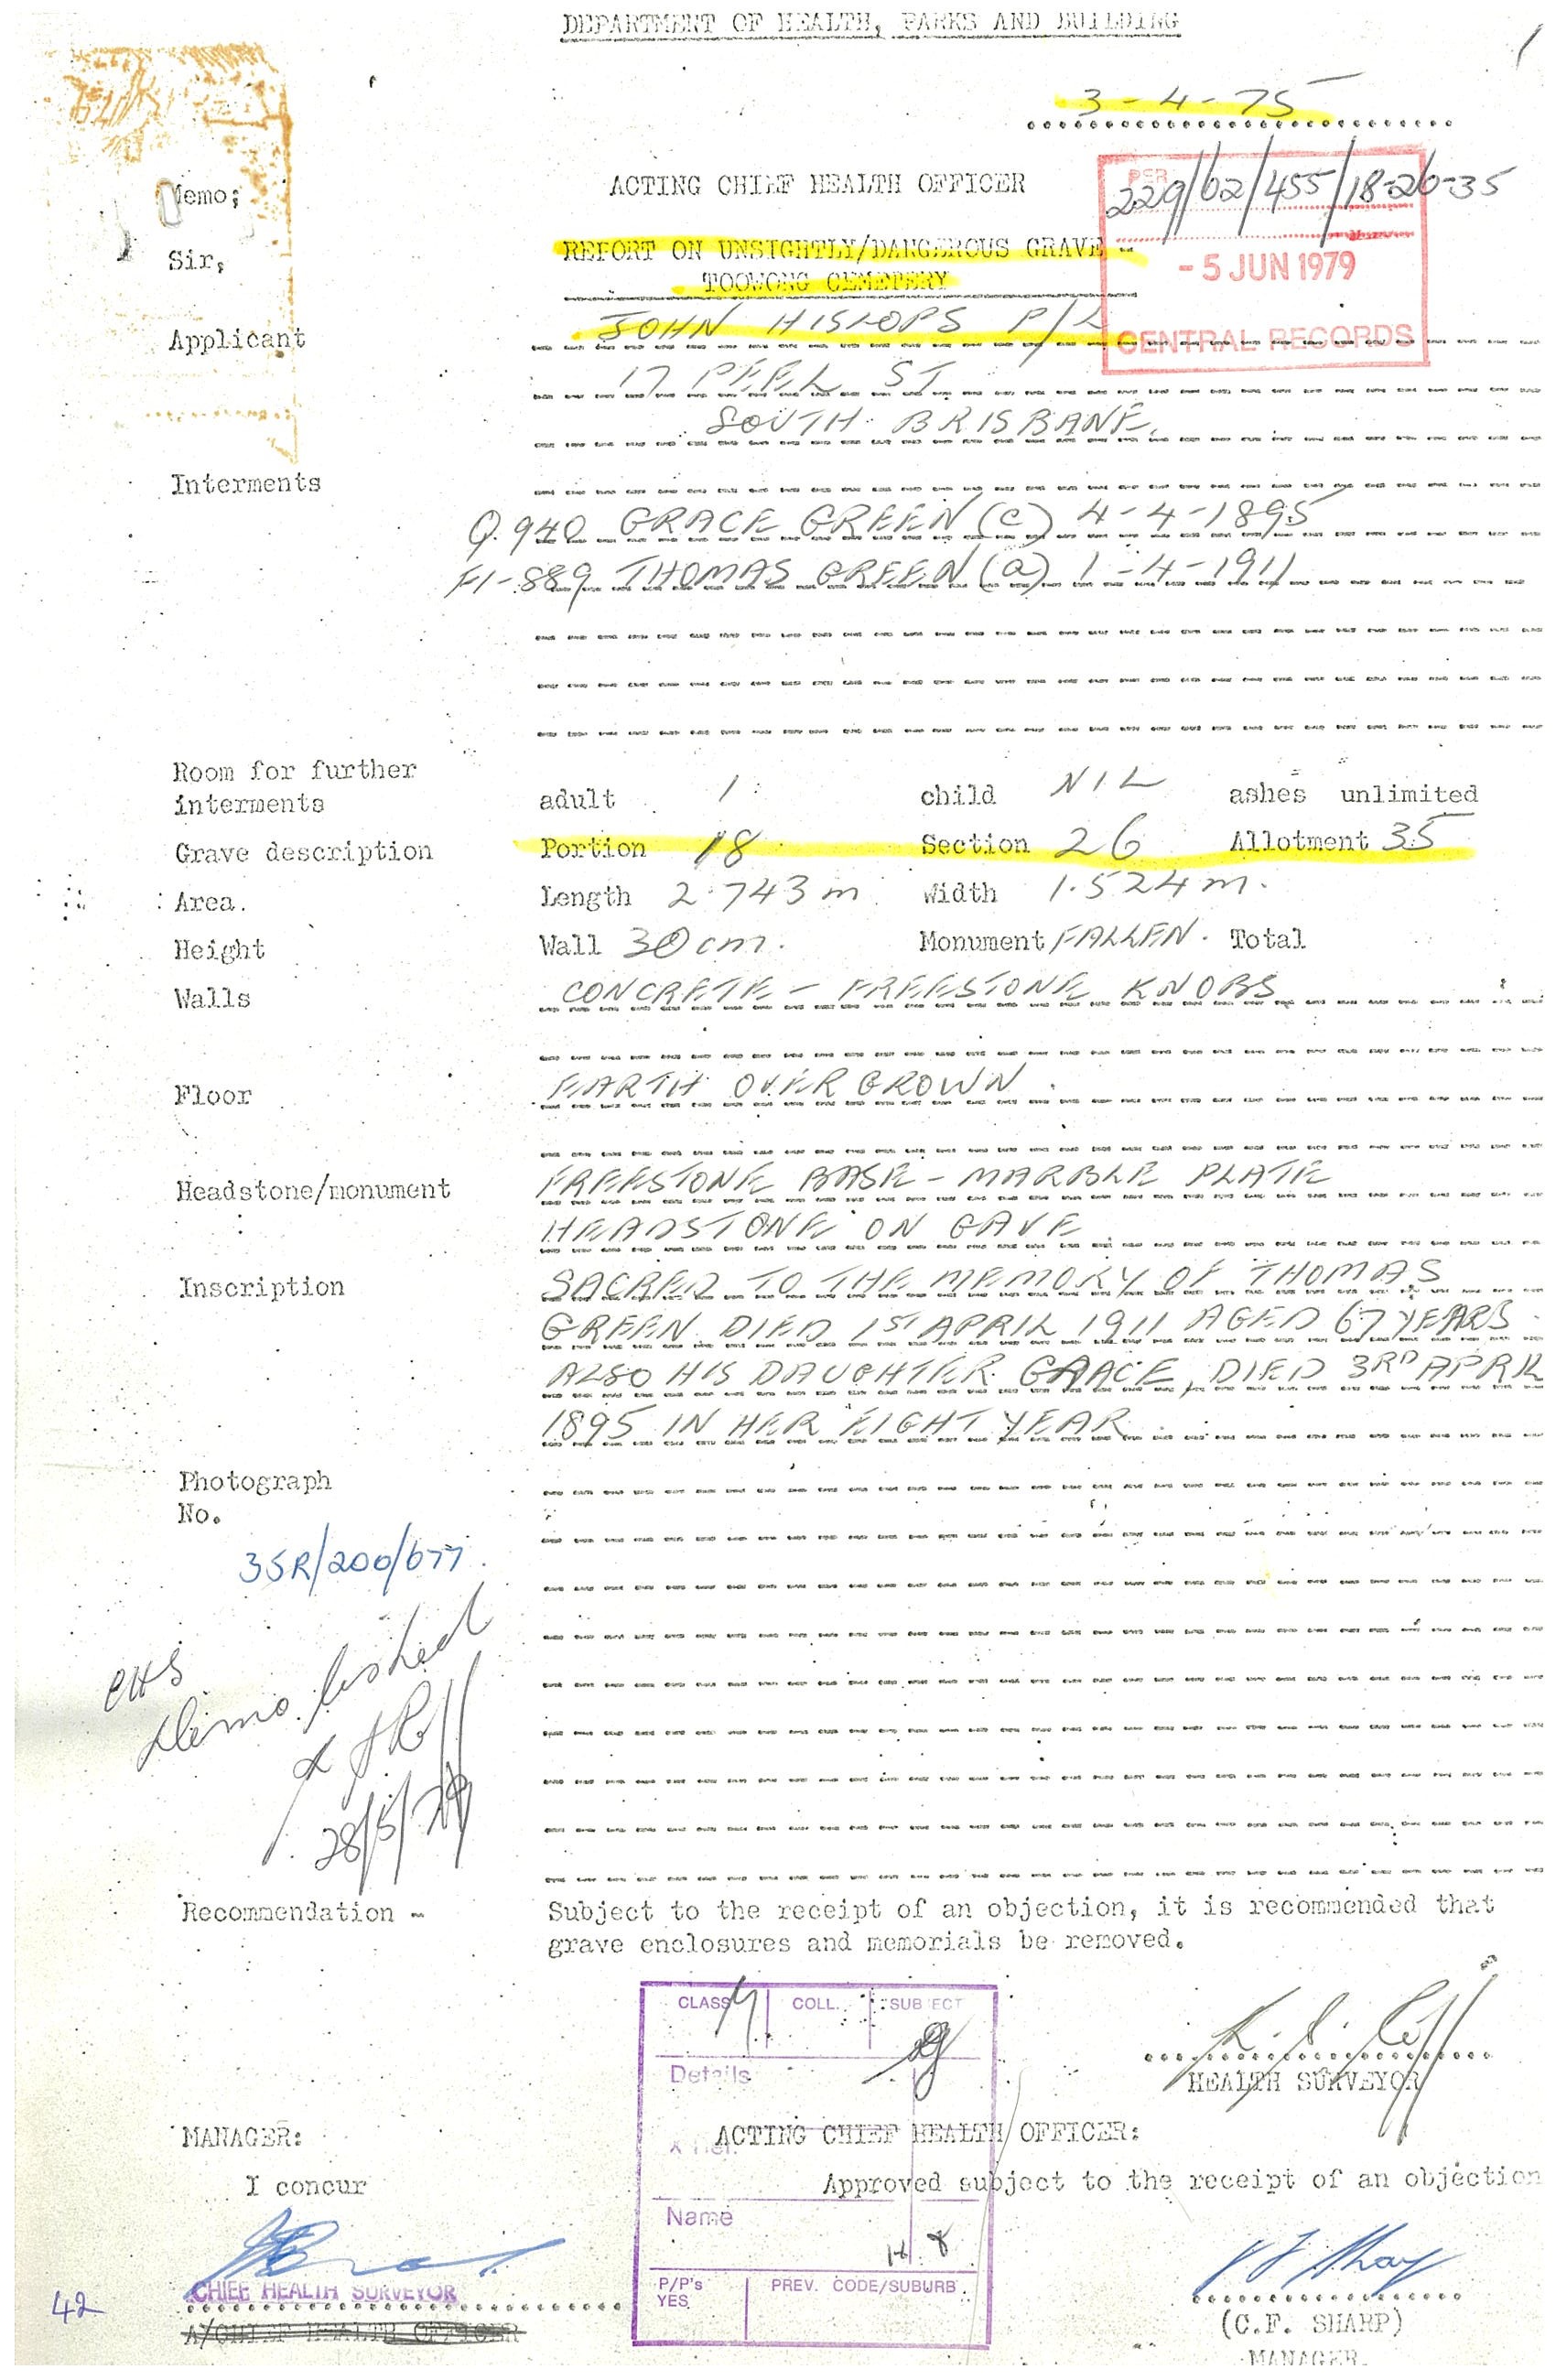 DEPARTMENT OF HEALTH, PARKS AND BUILDING
3-4-75
ACTING CHIEF HEALTH OFFICER
PER
229/62/455/18-26-35
Memo;
Sir,
REPORT ON UNSIGHTLY/DANGEROUS GRAVE -
TOOWONG CEMETERY
- 5 JUN 1979
CENTRAL RECORDS
Applicant JOHN HISLOPS P/L
17 PEEL ST
SOUTH BRISBANE.
Interments
Q.940 GRACE GREEN (c) 4-4-1895
F1-889 THOMAS GREEN (a) 1-4-1911
Room for further
interments adult 1 child NIL ashes unlimited
Grave description Portion 18 Section 26 Allotment 35
Area. Length 2.743m Width 1.524m.
Height Wall 30cm. Monument FALLEN. Total
Walls CONCRETE - FREESTONE KNOBS
Floor EARTH OVERGROWN.
Headstone/monument FREESTONE BASE - MARBLE PLATE
HEADSTONE ON GAVE
Inscription SACRED TO THE MEMORY OF THOMAS
GREEN DIED 1ST APRIL 1911 AGED 67 YEARS
ALSO HIS DAUGHTER GRACE, DIED 3RD APRIL
1895 IN HER EIGHT YEAR
Photograph
No.
35R/200/677.
CHS
28/5/79
Recommendation - Subject to the receipt of an objection, it is recommended that
grave enclosures and memorials be removed.
CLASS COLL. SUBJECT
Details
HEALTH SURVEYOR
MANAGER: ACTING CHIEF HEALTH OFFICER:
X Ref.
I concur Approved subject to the receipt of an objection
Name
H 8
CHIEF HEALTH SURVEYOR
P/P's PREV. CODE/SUBURB
YES
42
A/CHIEF HEALTH OFFICER
(C.F. SHARP)
MANAGER.